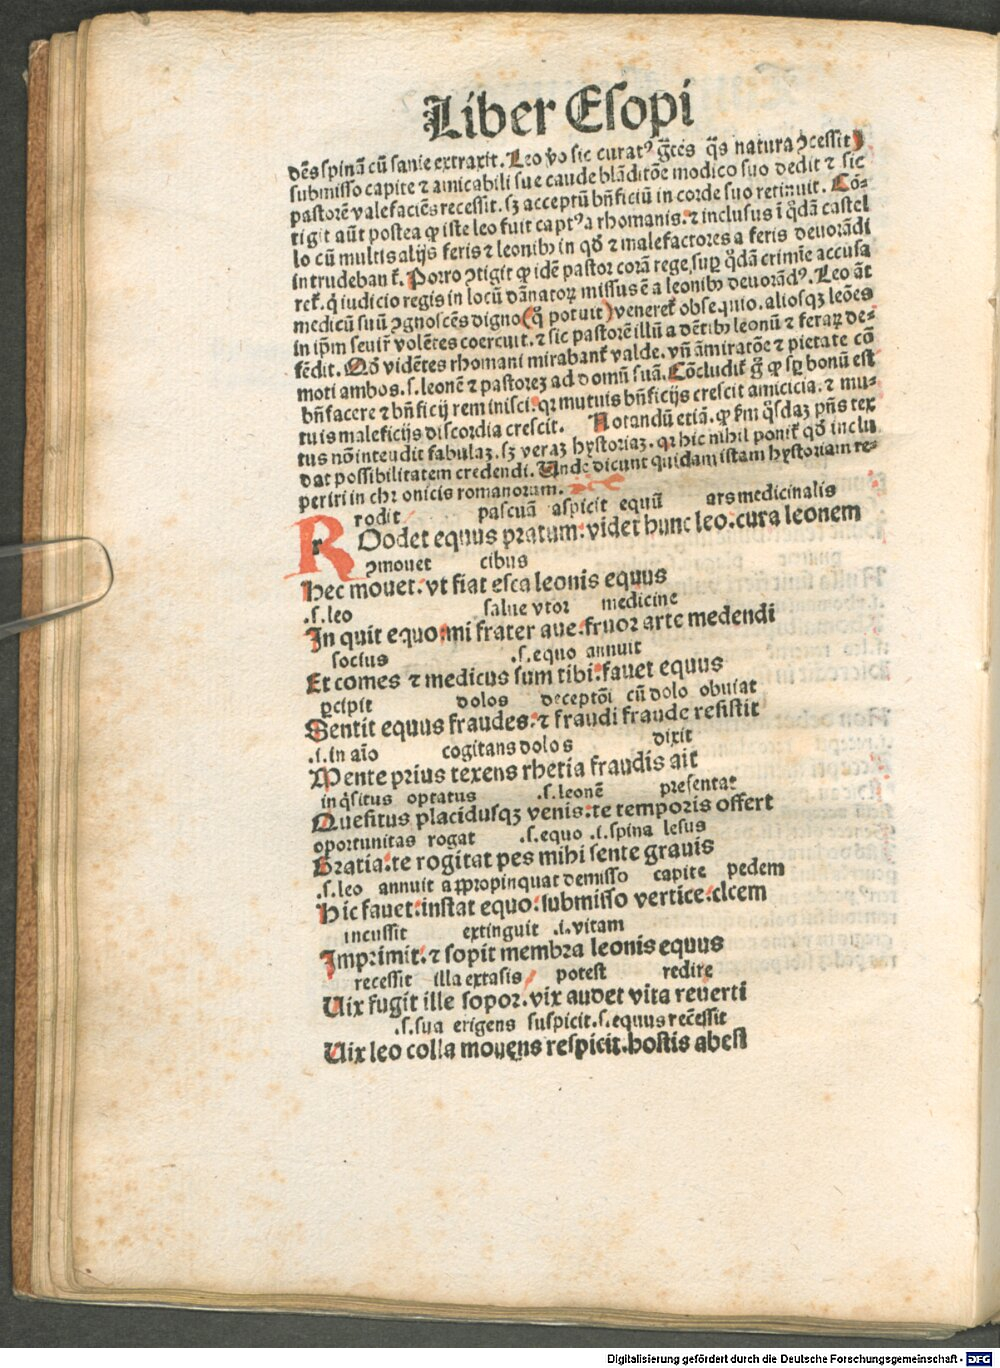 Liber Esopi
dēs spinā cū sanie extraxit. Leo v̄o sic curatꝰ gr̄tes q̄s natura ↄcessit
submisso capite ⁊ amicabili sue caude blāditōe modico suo dedit ⁊ sic
pastorē valefaciēs recessit. sꝫ acceptū bn̄ficiū in corde suo retinuit. Cō-
tigit aūt postea ꝙ iste leo fuit captꝰ a rhomanis. ⁊ inclusus ī q̇dā castel
lo cū multis alijs feris ⁊ leonibꝫ in qō ⁊ malefactores a feris deuorādi
intrudebant̄. Porro ↄtigit ꝙ idē pastor corā rege suꝑ q̇dā crimīe accusa
ret̄. q̇ iudicio regis in locū dānatoꝝ missus ē a leonibꝫ deuorādꝰ. Leo āt
medicū suū ↄgnoscēs digno (q̇ potuit) veneret̄ obsequio. aliosqꝫ leōes
in ip̄m seuir̄ volētes coercuit. ⁊ sic pastorē illū a dētibꝫ leonū ⁊ feraꝝ de-
fēdit. Qō vidētes rhomani mirabant̄ valde. vn̄ āmiratōe ⁊ pietate cō
moti ambos .s. leonē ⁊ pastoreꝫ ad domū suā. Cōcludit̄ g̊ ꝙ sꝑ bonū est
bn̄facere ⁊ bn̄ficij reminisci. qꝛ mutuis bn̄ficijs crescit amicicia. ⁊ mu-
tuis maleficijs discordia crescit. Notandū etiā. ꝙ ẜm q̇sdaꝫ pn̄s tex
tus nō intendit fabulaꝫ. sꝫ veraꝫ hystoriaꝫ. qꝛ hic nihil ponit̄ qō inclu
dat possibilitatem credendi. Unde dicunt quidam istam hystoriam re-
periri in chronicis romanorum.
rodit pascuā aspicit equū ars medicinalis
R Oodet equus pratum: videt hunc leo. cura leonem
ↄmouet cibus
Hec mouet. vt fiat esca leonis equus
.s. leo salue vtor medicine
In quit equo. mi frater aue. fruor arte medendi
socius .s. equo annuit
Et comes ⁊ medicus sum tibi. fauet equus
ꝑcipit dolos deceptōi cū dolo obuiat
Sentit equus fraudes. ⁊ fraudi fraude resistit
.i. in aīo cogitans dolos dixit
Mente prius texens rhetia fraudis ait
inq̇situs optatus .s. leonē presentat
Quesitus placidusqꝫ venis. te temporis offert
oportunitas rogat .s. equo .i. spina lesus
Gratia. te rogitat pes mihi sente grauis
.s. leo annuit appropinquat demisso capite pedem
Hic fauet. instat equo. submisso vertice. clcem
incussit extinguit .i. vitam
Imprimit. ⁊ sopit membra leonis equus
recessit illa extasis potest redire
Uix fugit ille sopor. vix audet vita reuerti
.s. sua erigens suspicit .s. equus recēssit
Uix leo colla mouens respicit. hostis abest
Digitalisierung gefördert durch die Deutsche Forschungsgemeinschaft - DFG